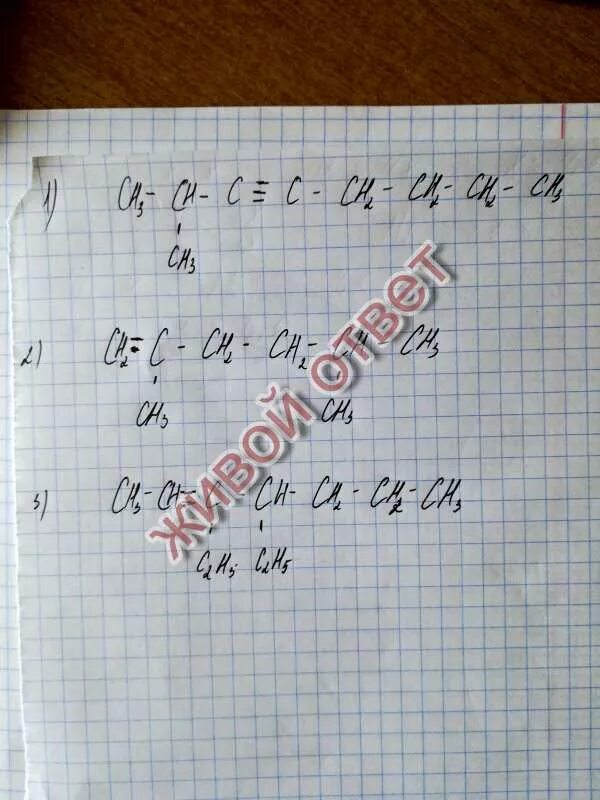 1) CH₃ - CH - C ≡ C - CH₂ - CH₂ - CH₂ - CH₃
CH₃
2) CH₂ = C - CH₂ - CH₂ - CH - CH₃
CH₃ CH₃
3) CH₃ - CH = C - CH - CH₂ - CH₂ - CH₃
C₂H₅ C₂H₅
ЖИВОЙ ОТВЕТ